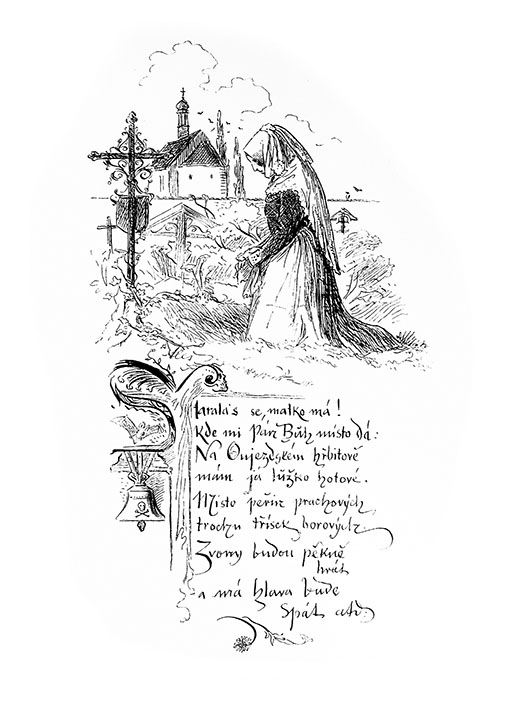 Starala's se, matko má!
Kde mi Pán Bůh místo dá:
Na Oujezdském hřbitově
mám já lůžko hotové.
Místo peřin prachových
trochu třísek borových.
Zvony budou pěkně
hrát
a má hlava bude
spát atd.